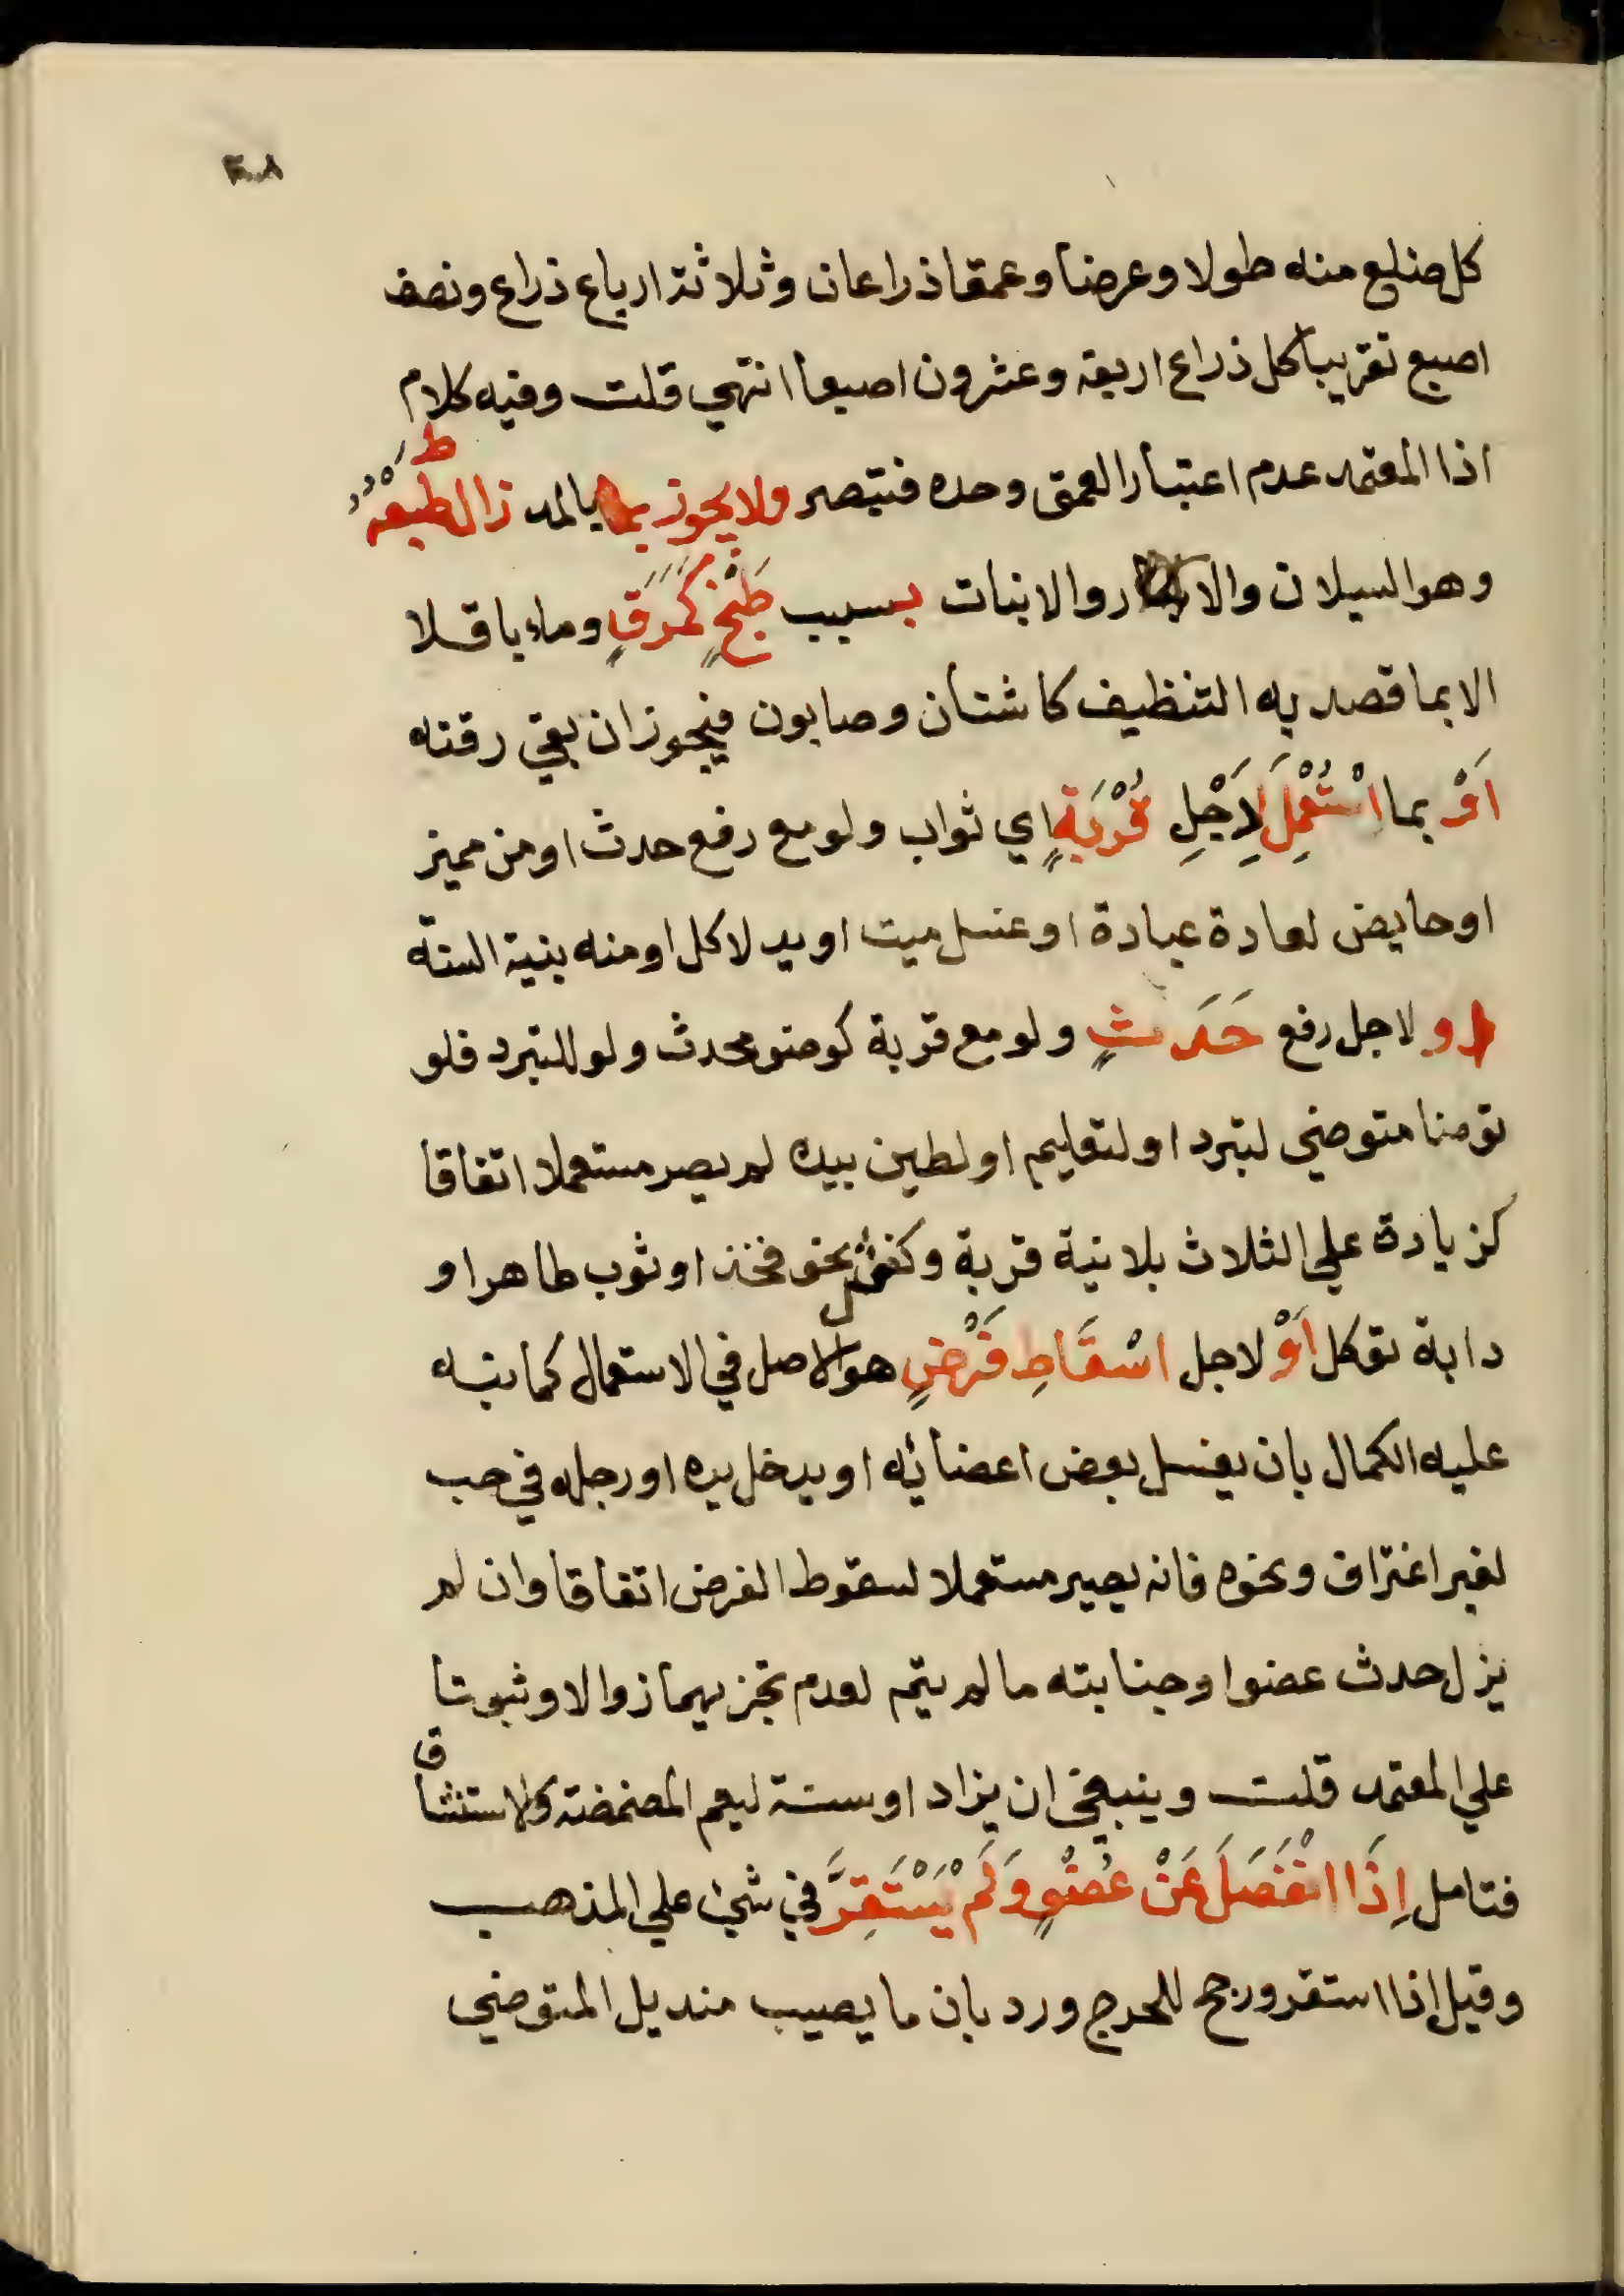 كل ضلع منه طولا وعرضا وعمقا ذراعان وثلاثة ارباع ذراع ونصف
اصبع تقريبا كل ذراع اربعة وعشرون اصبعا انتهي قلت وفيه كلام
اذا المعتمد عدم اعتبار العمق وحده فتبصر ولا يجوز بما بالمد زال طبعه ط
وهو السيلان والا روا والانبات بسبب طَبْخٍ كَمَرَقٍ وماء باقلا
الا بما قصد به التنظيف كاشنان وصابون فيجوز ان بقي رقته
اَوْ بما اسْتُعْمِلَ لِاَجْلِ قُرْبَةٍ اي ثواب ولو مع رفع حدث او من مميز
او حايض لعادة عبادة او غسل ميت او يد لاكل او منه بنية السنة
او لاجل رفع حَدَثٍ ولو مع قربة كوضو محدث ولو للتبرد فلو
توضا متوضي لتبرد او لتعليم او لطين بيده لم يصر مستعملا اتفاقا
كزيادة علي الثلاث بلا نية قربة وكغسل نحو فخذ او ثوب طاهر او
دابة توكل اَوْ لاجل اسْقَاطِ فَرْضٍ هو الاصل في الاستعمال كما نبه
عليه الكمال بان يغسل بعض اعضائه او يدخل يده او رجله في حب
لغير اغتراف ونحوه فانه يصير مستعملا لسقوط الفرض اتفاقا وان لم
يزل حدث عضو او جنابته ما لم يتم لعدم تجزيهما زوالا وثبوتا
علي المعتمد قلت وينبغي ان يزاد او سنة ليعم المضمضة والاستنشاق
فتامل اِذَا انْفَصَلَ عَنْ عُضْوٍ وَلَمْ يَسْتَقِرَّ في شيء علي المذهب
وقيل اذا استقر ورجح للحرج ورد بان ما يصيب منديل المتوضي